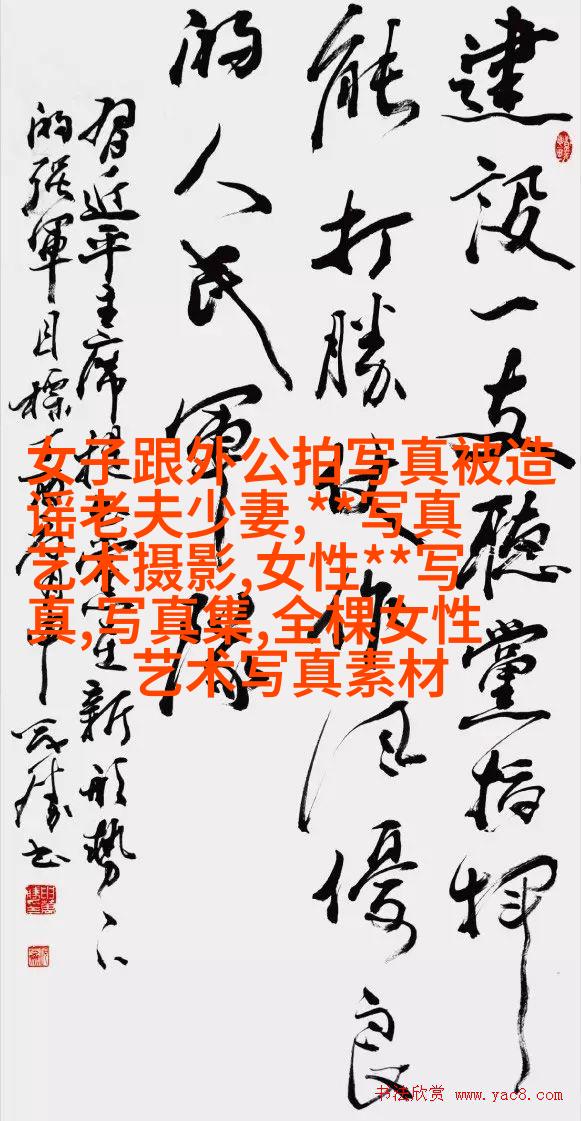 建设一支聽黨指揮
能打勝仗作风優良
的人民軍隊
習近平主席提新形勢下
的强軍目標
女子跟外公拍写真被造
谣老夫少妻,**写真
艺术摄影,女性**写
真,写真集,全棵女性
艺术写真素材
书法欣赏 www.yac8.com